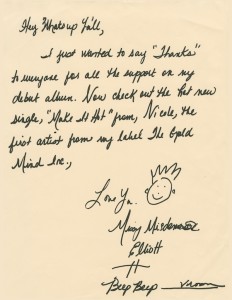 Hey, Whats up Y'all,
I just wanted to say "Thanks"
to everyone for all the support on my
debut album. Now check out the hot new
single, "Make It Hot" from, Nicole, the
first artist from my label The Gold
Mind Inc.,
Love Ya.
Missy Misdemeanor
Elliott
Beep Beep Vroom